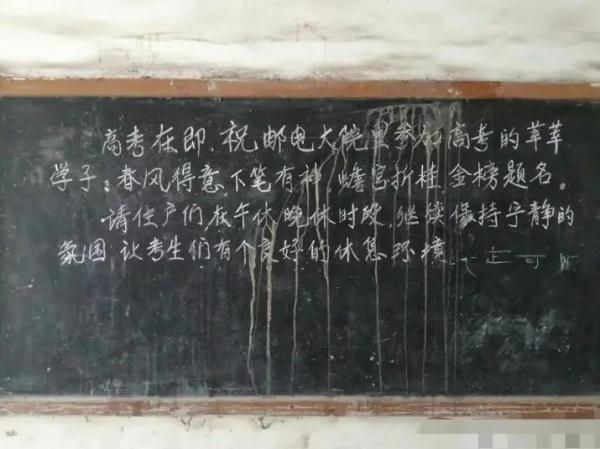 高考在即，祝邮电大院里参加高考的莘莘
学子：春风得意，下笔有神，蟾宫折桂，金榜题名。
请住户们，在午休晚休时段，继续保持宁静的
氛围，让考生们有个良好的休息环境